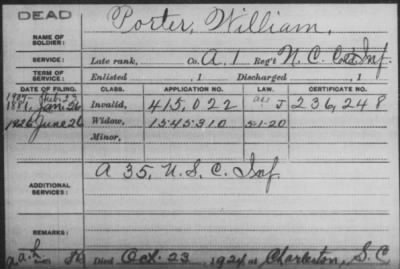 DEAD
NAME OF SOLDIER: Porter, William,
SERVICE: Late rank, Co. A, 1 Reg't N. C. Col'd Inf.
TERM OF SERVICE: Enlisted , 1 Discharged , 1
DATE OF FILING. CLASS. APPLICATION NO. LAW. CERTIFICATE NO.
1881, Jan. 26 Invalid, 415,022 J 236,248
1926 June 26 Widow, 1545310 5-1-20
Minor,
ADDITIONAL SERVICES: A 35, U. S. C. Inf.
REMARKS:
Died Oct. 23, 1924 at Charleston, S. C.